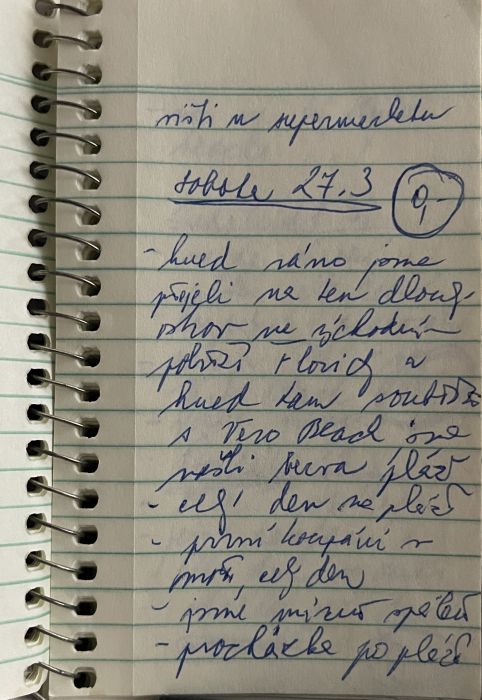 u supermarketu
sobota 27.3 0,-
- hned ráno jsme
přejeli na ten dlouhý
ostrov na východním
pobřeží Floridy a
hned tam
s Vero Beach jsme
našli pláž
- celý den na pláži
- první koupání v
moři, celý den
- jsme spálení
- procházka po pláži